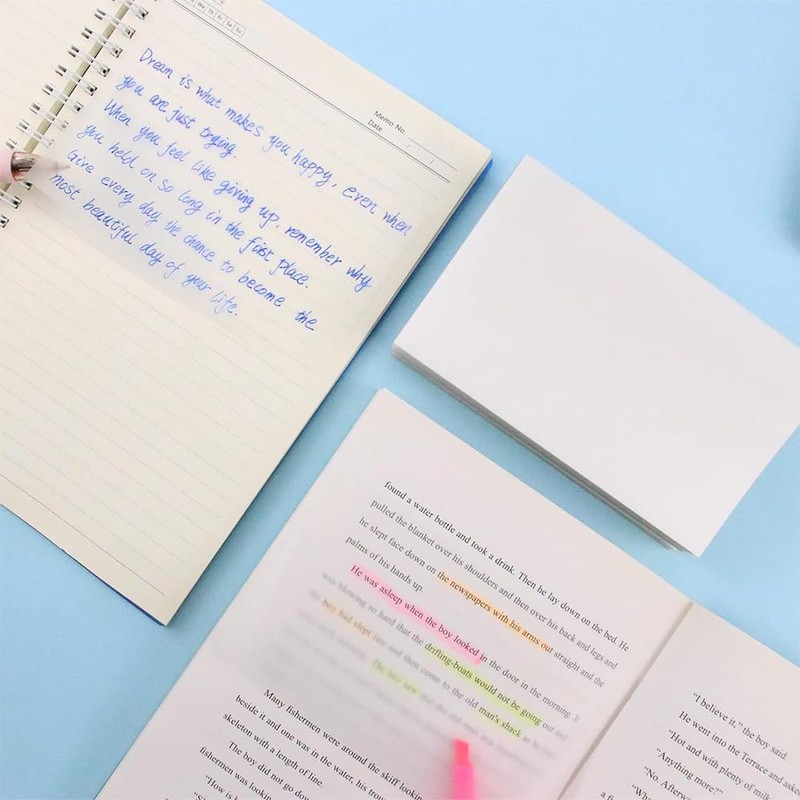 We Th Fr Sa Su
Memo No.
Date / /
Dream is what makes you happy, even when
you are just trying.
When you feel like giving up, remember why
you held on so long in the first place.
Give every day the chance to become the
most beautiful day of your life.
found a water bottle and took a drink. Then he lay down on the bed. He
pulled the blanket over his shoulders and then over his back and legs and
he slept face down on the newspapers with his arms out straight and the
palms of his hands up.
He was asleep when the boy looked in the door in the morning. It
was blowing so hard that the drifting-boats would not be going out and
the boy had slept late and then come to the old man's shack as he
The boy saw that the old man was
Many fishermen were around the skiff looking
beside it and one was in the water, his trou
skeleton with a length of line.
The boy did not go down
fishermen was lookin
"How is h
"I believe it," the boy said.
He went into the Terrace and aske
"Hot and with plenty of milk
"Anything more?"
"No. Afterw